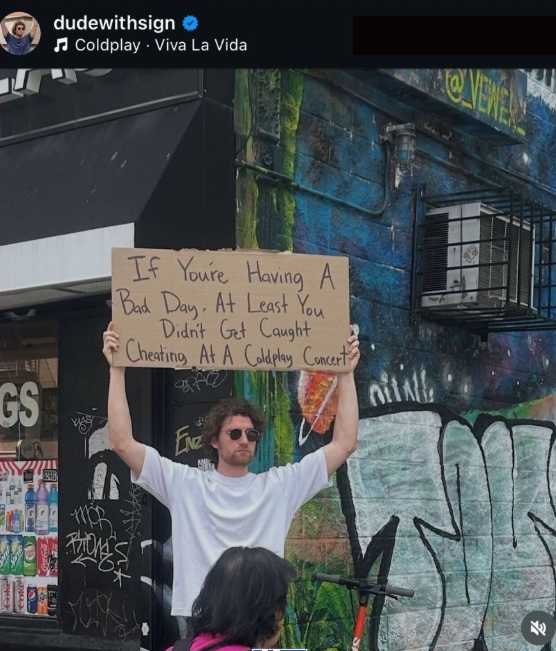 dudewithsign
Coldplay · Viva La Vida
@_VEWER_
If You're Having A
Bad Day. At Least You
Didn't Get Caught
Cheating At A Coldplay Concert
GS